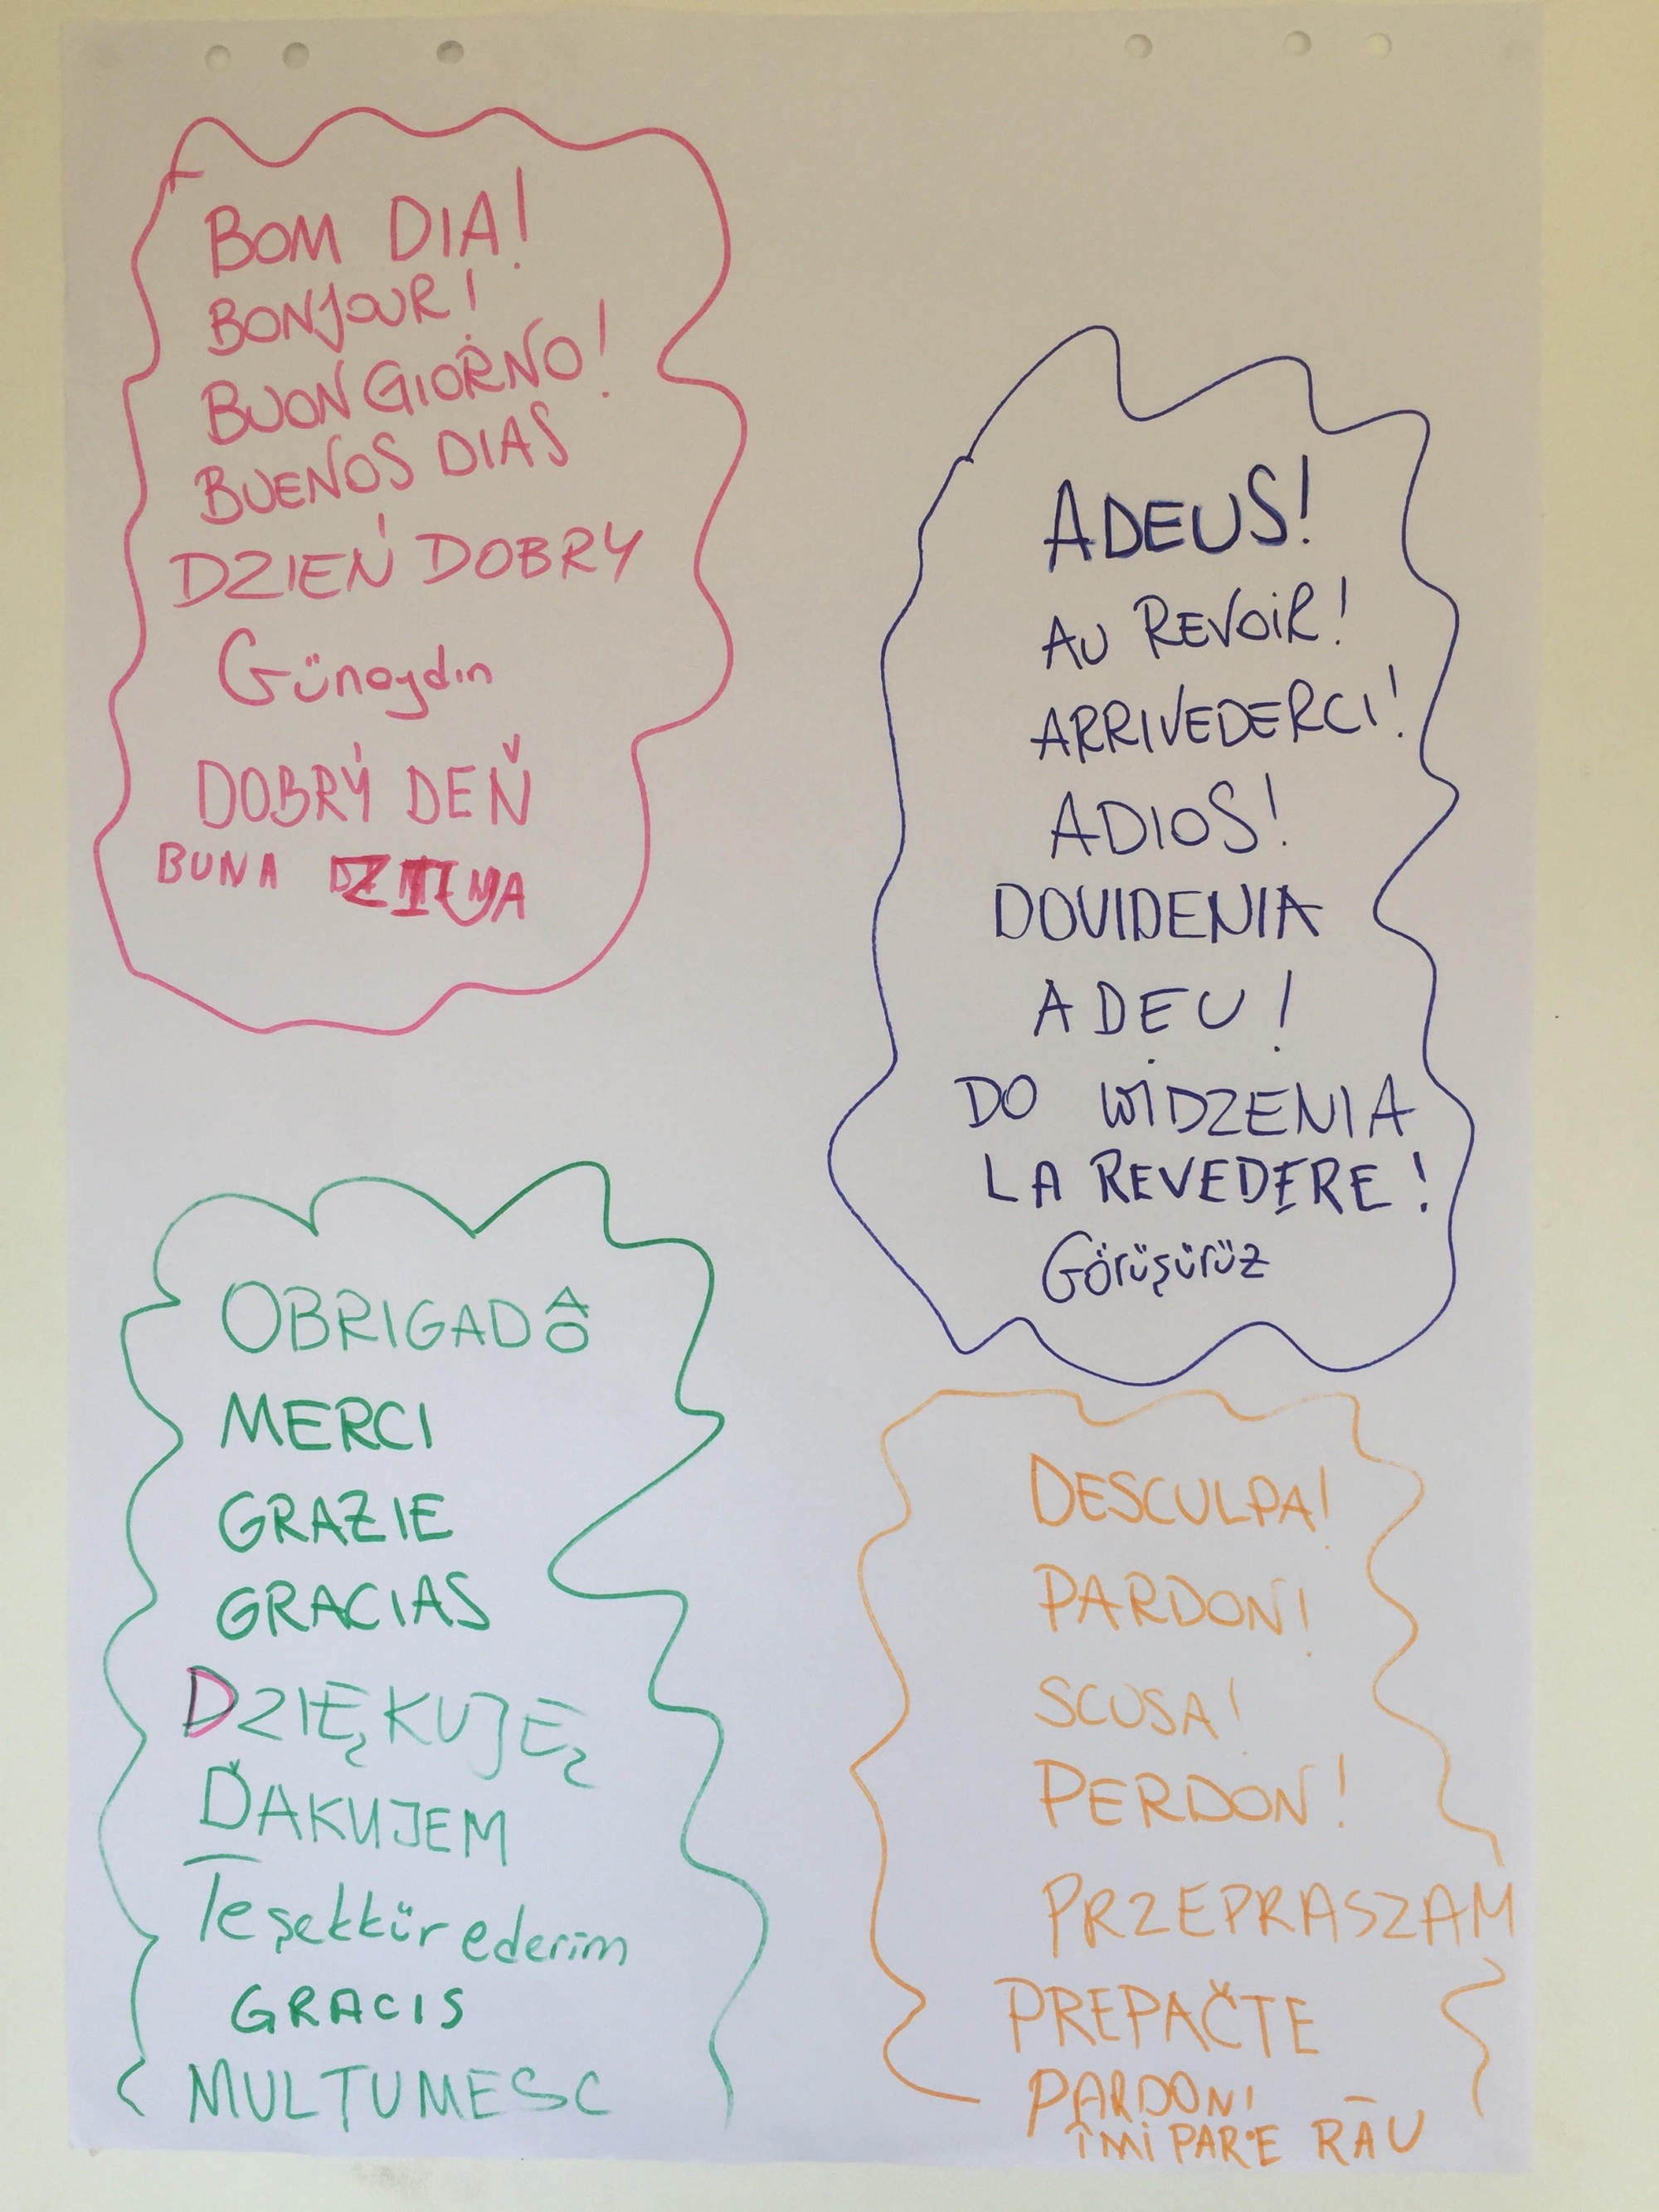 BOM DIA!
BONJOUR!
BUON GIORNO!
BUENOS DIAS
DZIEŃ DOBRY
Günaydın
DOBRÝ DEŇ
BUNA ZIUA
ADEUS!
AU REVOIR!
ARRIVEDERCI!
ADIOS!
DOVIDENIA
ADEU!
DO WIDZENIA
LA REVEDERE!
Görüşürüz
OBRIGADO A
MERCI
GRAZIE
GRACIAS
DZIĘKUJĘ
ĎAKUJEM
Teşekkür ederim
GRACIS
MULTUMESC
DESCULPA!
PARDON!
SCUSA!
PERDON!
PRZEPRASZAM
PREPAČTE
PARDON!
ÎMI PARE RĀU